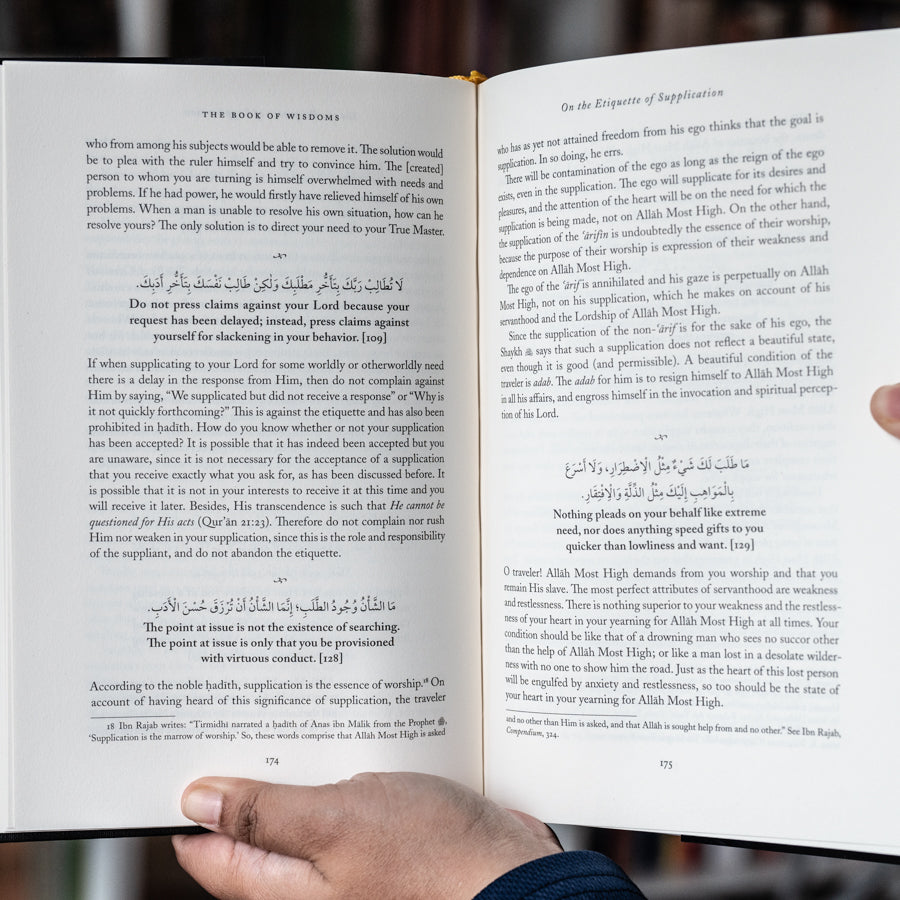 THE BOOK OF WISDOMS
who from among his subjects would be able to remove it. The solution would
be to plea with the ruler himself and try to convince him. The [created]
person to whom you are turning is himself overwhelmed with needs and
problems. If he had power, he would firstly have relieved himself of his own
problems. When a man is unable to resolve his own situation, how can he
resolve yours? The only solution is to direct your need to your True Master.
لَا تُطَالِبْ رَبَّكَ بِتَأَخُّرِ مَطْلَبِكَ وَلَٰكِنْ طَالِبْ نَفْسَكَ بِتَأَخُّرِ أَدَبِكَ.
Do not press claims against your Lord because your
request has been delayed; instead, press claims against
yourself for slackening in your behavior. [109]
If when supplicating to your Lord for some worldly or otherworldly need
there is a delay in the response from Him, then do not complain against
Him by saying, “We supplicated but did not receive a response” or “Why is
it not quickly forthcoming?” This is against the etiquette and has also been
prohibited in ḥadīth. How do you know whether or not your supplication
has been accepted? It is possible that it has indeed been accepted but you
are unaware, since it is not necessary for the acceptance of a supplication
that you receive exactly what you ask for, as has been discussed before. It
is possible that it is not in your interests to receive it at this time and you
will receive it later. Besides, His transcendence is such that He cannot be
questioned for His acts (Qurʾān 21:23). Therefore do not complain nor rush
Him nor weaken in your supplication, since this is the role and responsibility
of the suppliant, and do not abandon the etiquette.
مَا الشَّأْنُ وُجُودُ الطَّلَبِ؛ إِنَّمَا الشَّأْنُ أَنْ تُرْزَقَ حُسْنَ الْأَدَبِ.
The point at issue is not the existence of searching.
The point at issue is only that you be provisioned
with virtuous conduct. [128]
According to the noble ḥadīth, supplication is the essence of worship.18 On
account of having heard of this significance of supplication, the traveler
18 Ibn Rajab writes: “Tirmidhī narrated a ḥadīth of Anas ibn Mālik from the Prophet ﷺ,
‘Supplication is the marrow of worship.’ So, these words comprise that Allāh Most High is asked
174
On the Etiquette of Supplication
who has as yet not attained freedom from his ego thinks that the goal is
supplication. In so doing, he errs.
There will be contamination of the ego as long as the reign of the ego
exists, even in the supplication. The ego will supplicate for its desires and
pleasures, and the attention of the heart will be on the need for which the
supplication is being made, not on Allāh Most High. On the other hand,
the supplication of the ʿārifīn is undoubtedly the essence of their worship,
because the purpose of their worship is expression of their weakness and
dependence on Allāh Most High.
The ego of the ʿārif is annihilated and his gaze is perpetually on Allāh
Most High, not on his supplication, which he makes on account of his
servanthood and the Lordship of Allāh Most High.
Since the supplication of the non-ʿārif is for the sake of his ego, the
Shaykh says that such a supplication does not reflect a beautiful state,
even though it is good (and permissible). A beautiful condition of the
traveler is adab. The adab for him is to resign himself to Allāh Most High
in all his affairs, and engross himself in the invocation and spiritual percep-
tion of his Lord.
مَا طَلَبَ لَكَ شَيْءٌ مِثْلُ الِاضْطِرَارِ، وَلَا أَسْرَعَ
بِالْمَوَاهِبِ إِلَيْكَ مِثْلُ الذِّلَّةِ وَالِافْتِقَارِ.
Nothing pleads on your behalf like extreme
need, nor does anything speed gifts to you
quicker than lowliness and want. [129]
O traveler! Allāh Most High demands from you worship and that you
remain His slave. The most perfect attributes of servanthood are weakness
and restlessness. There is nothing superior to your weakness and the restless-
ness of your heart in your yearning for Allāh Most High at all times. Your
condition should be like that of a drowning man who sees no succor other
than the help of Allāh Most High; or like a man lost in a desolate wilder-
ness with no one to show him the road. Just as the heart of this lost person
will be engulfed by anxiety and restlessness, so too should be the state of
your heart in your yearning for Allāh Most High.
and no other than Him is asked, and that Allāh is sought help from and no other.” See Ibn Rajab,
Compendium, 324.
175